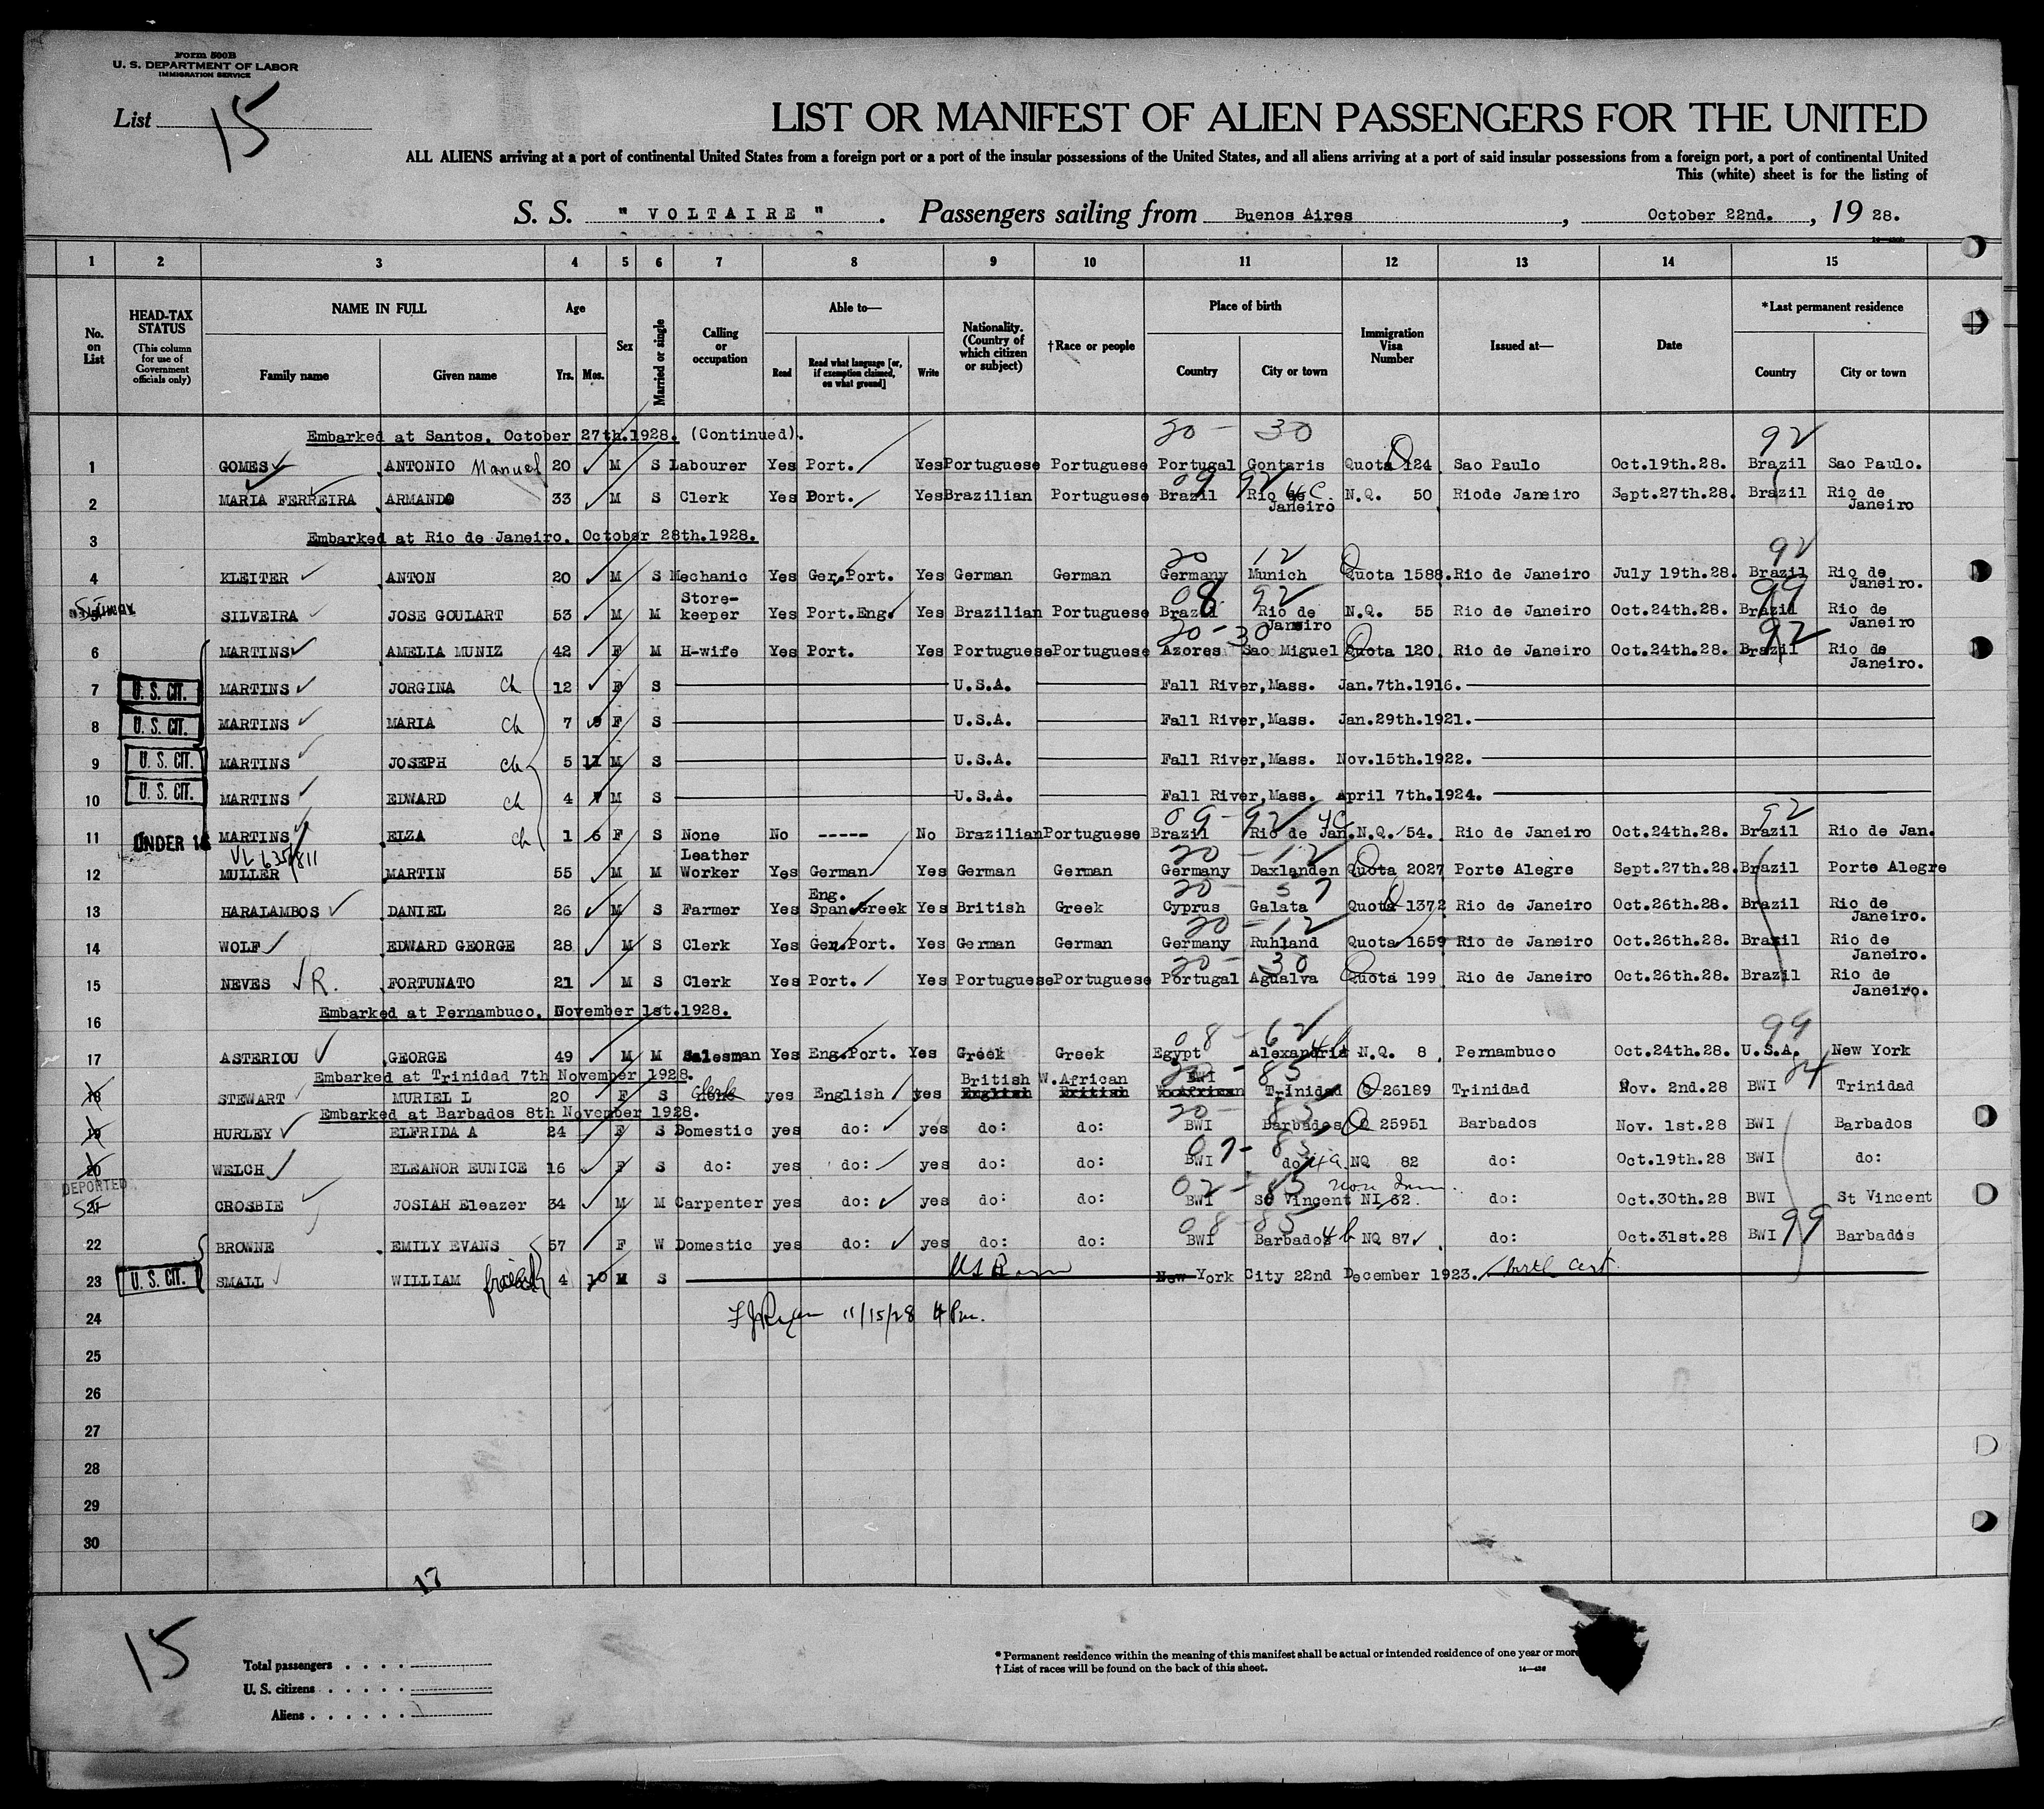 Form 500B
U. S. DEPARTMENT OF LABOR
IMMIGRATION SERVICE
List 15
LIST OR MANIFEST OF ALIEN PASSENGERS FOR THE UNITED
ALL ALIENS arriving at a port of continental United States from a foreign port or a port of the insular possessions of the United States, and all aliens arriving at a port of said insular possessions from a foreign port, a port of continental United
This (white) sheet is for the listing of
S. S. " VOLTAIRE " . Passengers sailing from Buenos Aires , October 22nd. , 19 28.
1 2 3 4 5 6 7 8 9 10 11 12 13 14 15
No. on List
HEAD-TAX STATUS
(This column for use of Government officials only)
NAME IN FULL
Family name Given name
Age
Yrs. Mos.
Sex
Married or single
Calling or occupation
Able to—
Read Read what language [or, if exemption claimed, on what ground] Write
Nationality. (Country of which citizen or subject)
†Race or people
Place of birth
Country City or town
Immigration Visa Number
Issued at—
Date
*Last permanent residence
Country City or town
Embarked at Santos. October 27th.1928. (Continued). 20 - 30 92
1 GOMES ANTONIO Manuel 20 M S Labourer Yes Port. Yes Portuguese Portuguese Portugal Gontaris Quota 124 Sao Paulo Oct.19th.28. Brazil Sao Paulo.
09 92 4C
2 MARIA FERREIRA ARMANDO 33 M S Clerk Yes Port. Yes Brazilian Portuguese Brazil Rio de Janeiro N.Q. 50 Riode Janeiro Sept.27th.28. Brazil Rio de Janeiro
3 Embarked at Rio de Janeiro. October 28th.1928.
20 12 92
4 KLEITER ANTON 20 M S Mechanic Yes Ger.Port. Yes German German Germany Munich Quota 1588. Rio de Janeiro July 19th.28. Brazil Rio de Janeiro.
08 92 99
5 SILVEIRA JOSE GOULART 53 M M Store-keeper Yes Port.Eng. Yes Brazilian Portuguese Brazil Rio de Janeiro N.Q. 55 Rio de Janeiro Oct.24th.28. Brazil Rio de Janeiro
20 - 30 92
6 MARTINS AMELIA MUNIZ 42 F M H-wife Yes Port. Yes Portuguese Portuguese Azores Sao Miguel Quota 120 Rio de Janeiro Oct.24th.28. Brazil Rio de Janeiro.
7 U. S. CIT. MARTINS JORGINA ch 12 F S U.S.A. Fall River,Mass. Jan.7th.1916.
8 U. S. CIT. MARTINS MARIA ch 7 9 F S U.S.A. Fall River,Mass. Jan.29th.1921.
9 U. S. CIT. MARTINS JOSEPH ch 5 11 M S U.S.A. Fall River,Mass. Nov.15th.1922.
10 U. S. CIT. MARTINS EDWARD ch 4 7 M S U.S.A. Fall River,Mass. April 7th.1924.
09 - 92 4C 92
11 UNDER 16 MARTINS EIZA ch 1 6 F S None No ----- No Brazilian Portuguese Brazil Rio de Jan. N.Q. 54. Rio de Janeiro Oct.24th.28. Brazil Rio de Jan.
20 - 12
12 MULLER MARTIN 55 M M Leather Worker Yes German Yes German German Germany Daxlanden Quota 2027 Porte Alegre Sept.27th.28. Brazil Porte Alegre
20 - 57
13 HARALAMBOS DANIEL 26 M S Farmer Yes Eng. Span.Greek Yes British Greek Cyprus Galata Quota 1372 Rio de Janeiro Oct.26th.28. Brazil Rio de Janeiro.
20 - 12
14 WOLF EDWARD GEORGE 28 M S Clerk Yes Ger.Port. Yes German German Germany Ruhland Quota 1659 Rio de Janeiro Oct.26th.28. Brazil Rio de Janeiro.
20 - 30
15 NEVES R. FORTUNATO 21 M S Clerk Yes Port. Yes Portuguese Portuguese Portugal Agualva Quota 199 Rio de Janeiro Oct.26th.28. Brazil Rio de Janeiro.
16 Embarked at Pernambuco. November 1st.1928.
08 - 62 99
17 ASTERIOU GEORGE 49 M M Salesman Yes Eng.Port. Yes Greek Greek Egypt Alexandria 4b N.Q. 8 Pernambuco Oct.24th.28. U.S.A. New York
Embarked at Trinidad 7th November 1928.
18 STEWART MURIEL L 20 F S Clerk yes English yes British W.African BWI Trinidad Q 26189 Trinidad Nov. 2nd.28 BWI Trinidad
Embarked at Barbados 8th November 1928.
20 - 85
19 HURLEY ELFRIDA A 24 F S Domestic yes do: yes do: do: BWI Barbados Q 25951 Barbados Nov. 1st.28 BWI Barbados
07 - 85
20 WELCH ELEANOR EUNICE 16 F S do: yes do: yes do: do: BWI do 4a NQ 82 do: Oct.19th.28 BWI do:
DEPORTED
02 - 85
21 CROSBIE JOSIAH Eleazer 34 M M Carpenter yes do: yes do: do: BWI St Vincent NI 62. do: Oct.30th.28 BWI St Vincent
08 - 85
22 BROWNE EMILY EVANS 57 F W Domestic yes do: yes do: do: BWI Barbados 4b NQ 87 do: Oct.31st.28 BWI 99 Barbados
23 U. S. CIT. SMALL WILLIAM 4 10 M S US Born New York City 22nd December 1923. birth cert.
24 11/15/28 4 Pm.
25
26
27
28
29
30
17
15
Total passengers
U. S. citizens
Aliens
* Permanent residence within the meaning of this manifest shall be actual or intended residence of one year or more
† List of races will be found on the back of this sheet.
14—436